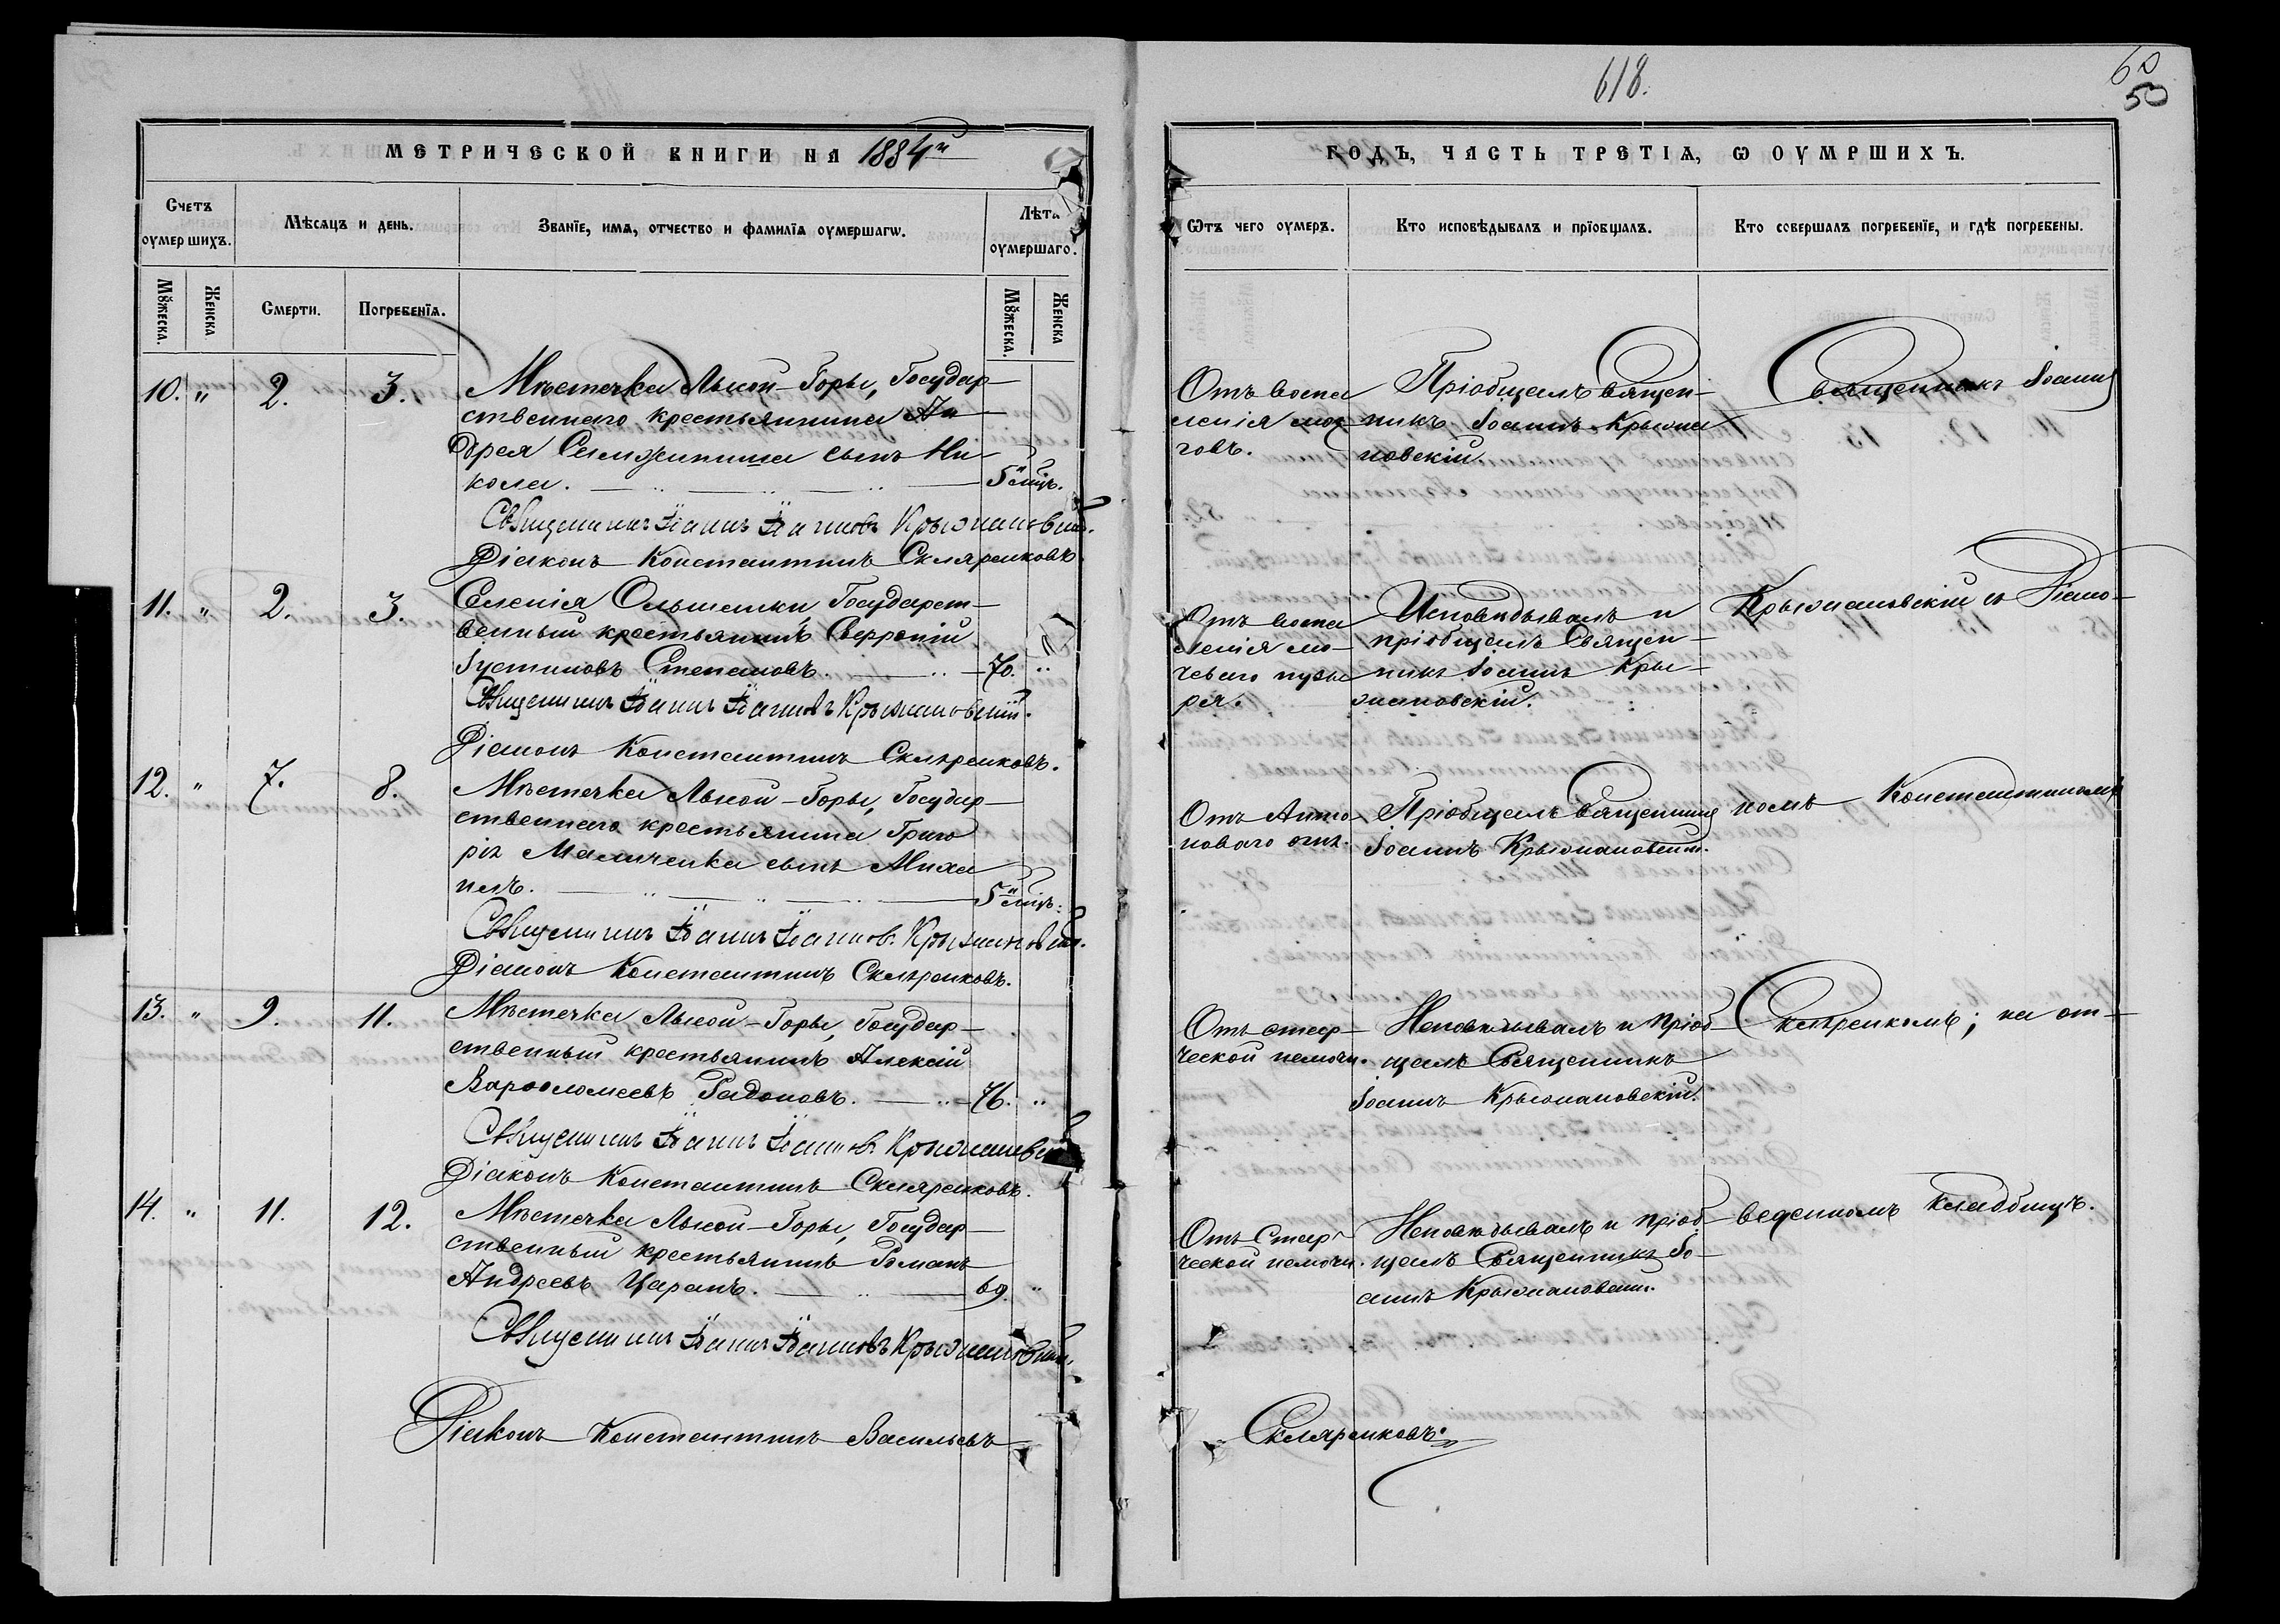 618.
60
50
МЕТРИЧЕСКОЙ КНИГИ НА 1884й
ГОДЪ, ЧАСТЬ ТРЕТІѦ, Ѡ ОУМРШИХЪ.
Счетъ оумершихъ.
Мѣсѧцъ и день.
Званїе, имѧ, отчество и фамилїѧ оумершагѡ.
Лѣта оумершаго.
Ѿтъ чего оумеръ.
Кто исповѣдывалъ и прїобщалъ.
Кто совершалъ погребенїе, и гдѣ погребены.
Мꙋжеска.
Женска
Смерти.
Погребенїѧ.
Мꙋжеска.
Женска
10. " 2. 3. Мѣстечка Лысой-Горы, Государ-
ственнаго крестьянина Ан-
дрея сынъ Ни-
кола. 5 мѣс.
Священникъ Іоаннъ Іоанновъ Крыжановскій.
Діаконъ Константинъ Скляренковъ.
Отъ воспа
ленія моз
говъ.
Пріобщалъ Священ-
никъ Іоаннъ Крыжа
новскій
Священникъ Іоаннъ
11. " 2. 3. Селенія Ольшанки, Государст-
венный крестьянинъ
Іустиновъ Степановъ. 70. "
Священникъ Іоаннъ Іоанновъ Крыжановскій.
Діаконъ Константинъ Скляренковъ.
Отъ воспа
ленія мо-
чеваго пузы
ря.
Исповѣдывалъ и
пріобщалъ Священ-
никъ Іоаннъ Кры-
жановскій.
Крыжановскій съ Діако-
12. " 7. 8. Мѣстечка Лысой-Горы, Государ-
ственнаго крестьянина Григо
рія сынъ Миха
илъ. 5 мѣс.
Священникъ Іоаннъ Іоанновъ Крыжановскій.
Діаконъ Константинъ Скляренковъ.
Отъ Анто-
новаго огня.
Пріобщалъ Священникъ
Іоаннъ Крыжановскій.
номъ Константиномъ
13. " 9. 11. Мѣстечка Лысой-Горы, Государ-
ственный крестьянинъ Алексій
Варѳоломеевъ Радоновъ. 76. "
Священникъ Іоаннъ Іоанновъ Крыжановскій
Діаконъ Константинъ Скляренковъ.
Отъ стар-
ческой немочи.
Исповѣдывалъ и пріоб-
щалъ Священникъ
Іоаннъ Крыжановскій.
Скляренкомъ; на от-
14. " 11. 12. Мѣстечка Лысой-Горы, Государ-
ственный крестьянинъ Романъ
Андреевъ Царанъ. 69. "
Священникъ Іоаннъ Іоанновъ Крыжановскій.
Отъ Стар-
ческой немочи.
Исповѣдывалъ и пріоб-
щалъ Священникъ Іо-
аннъ Крыжановскій.
веденномъ кладбищѣ.
Діаконъ Константинъ Васильевъ
Скляренковъ.